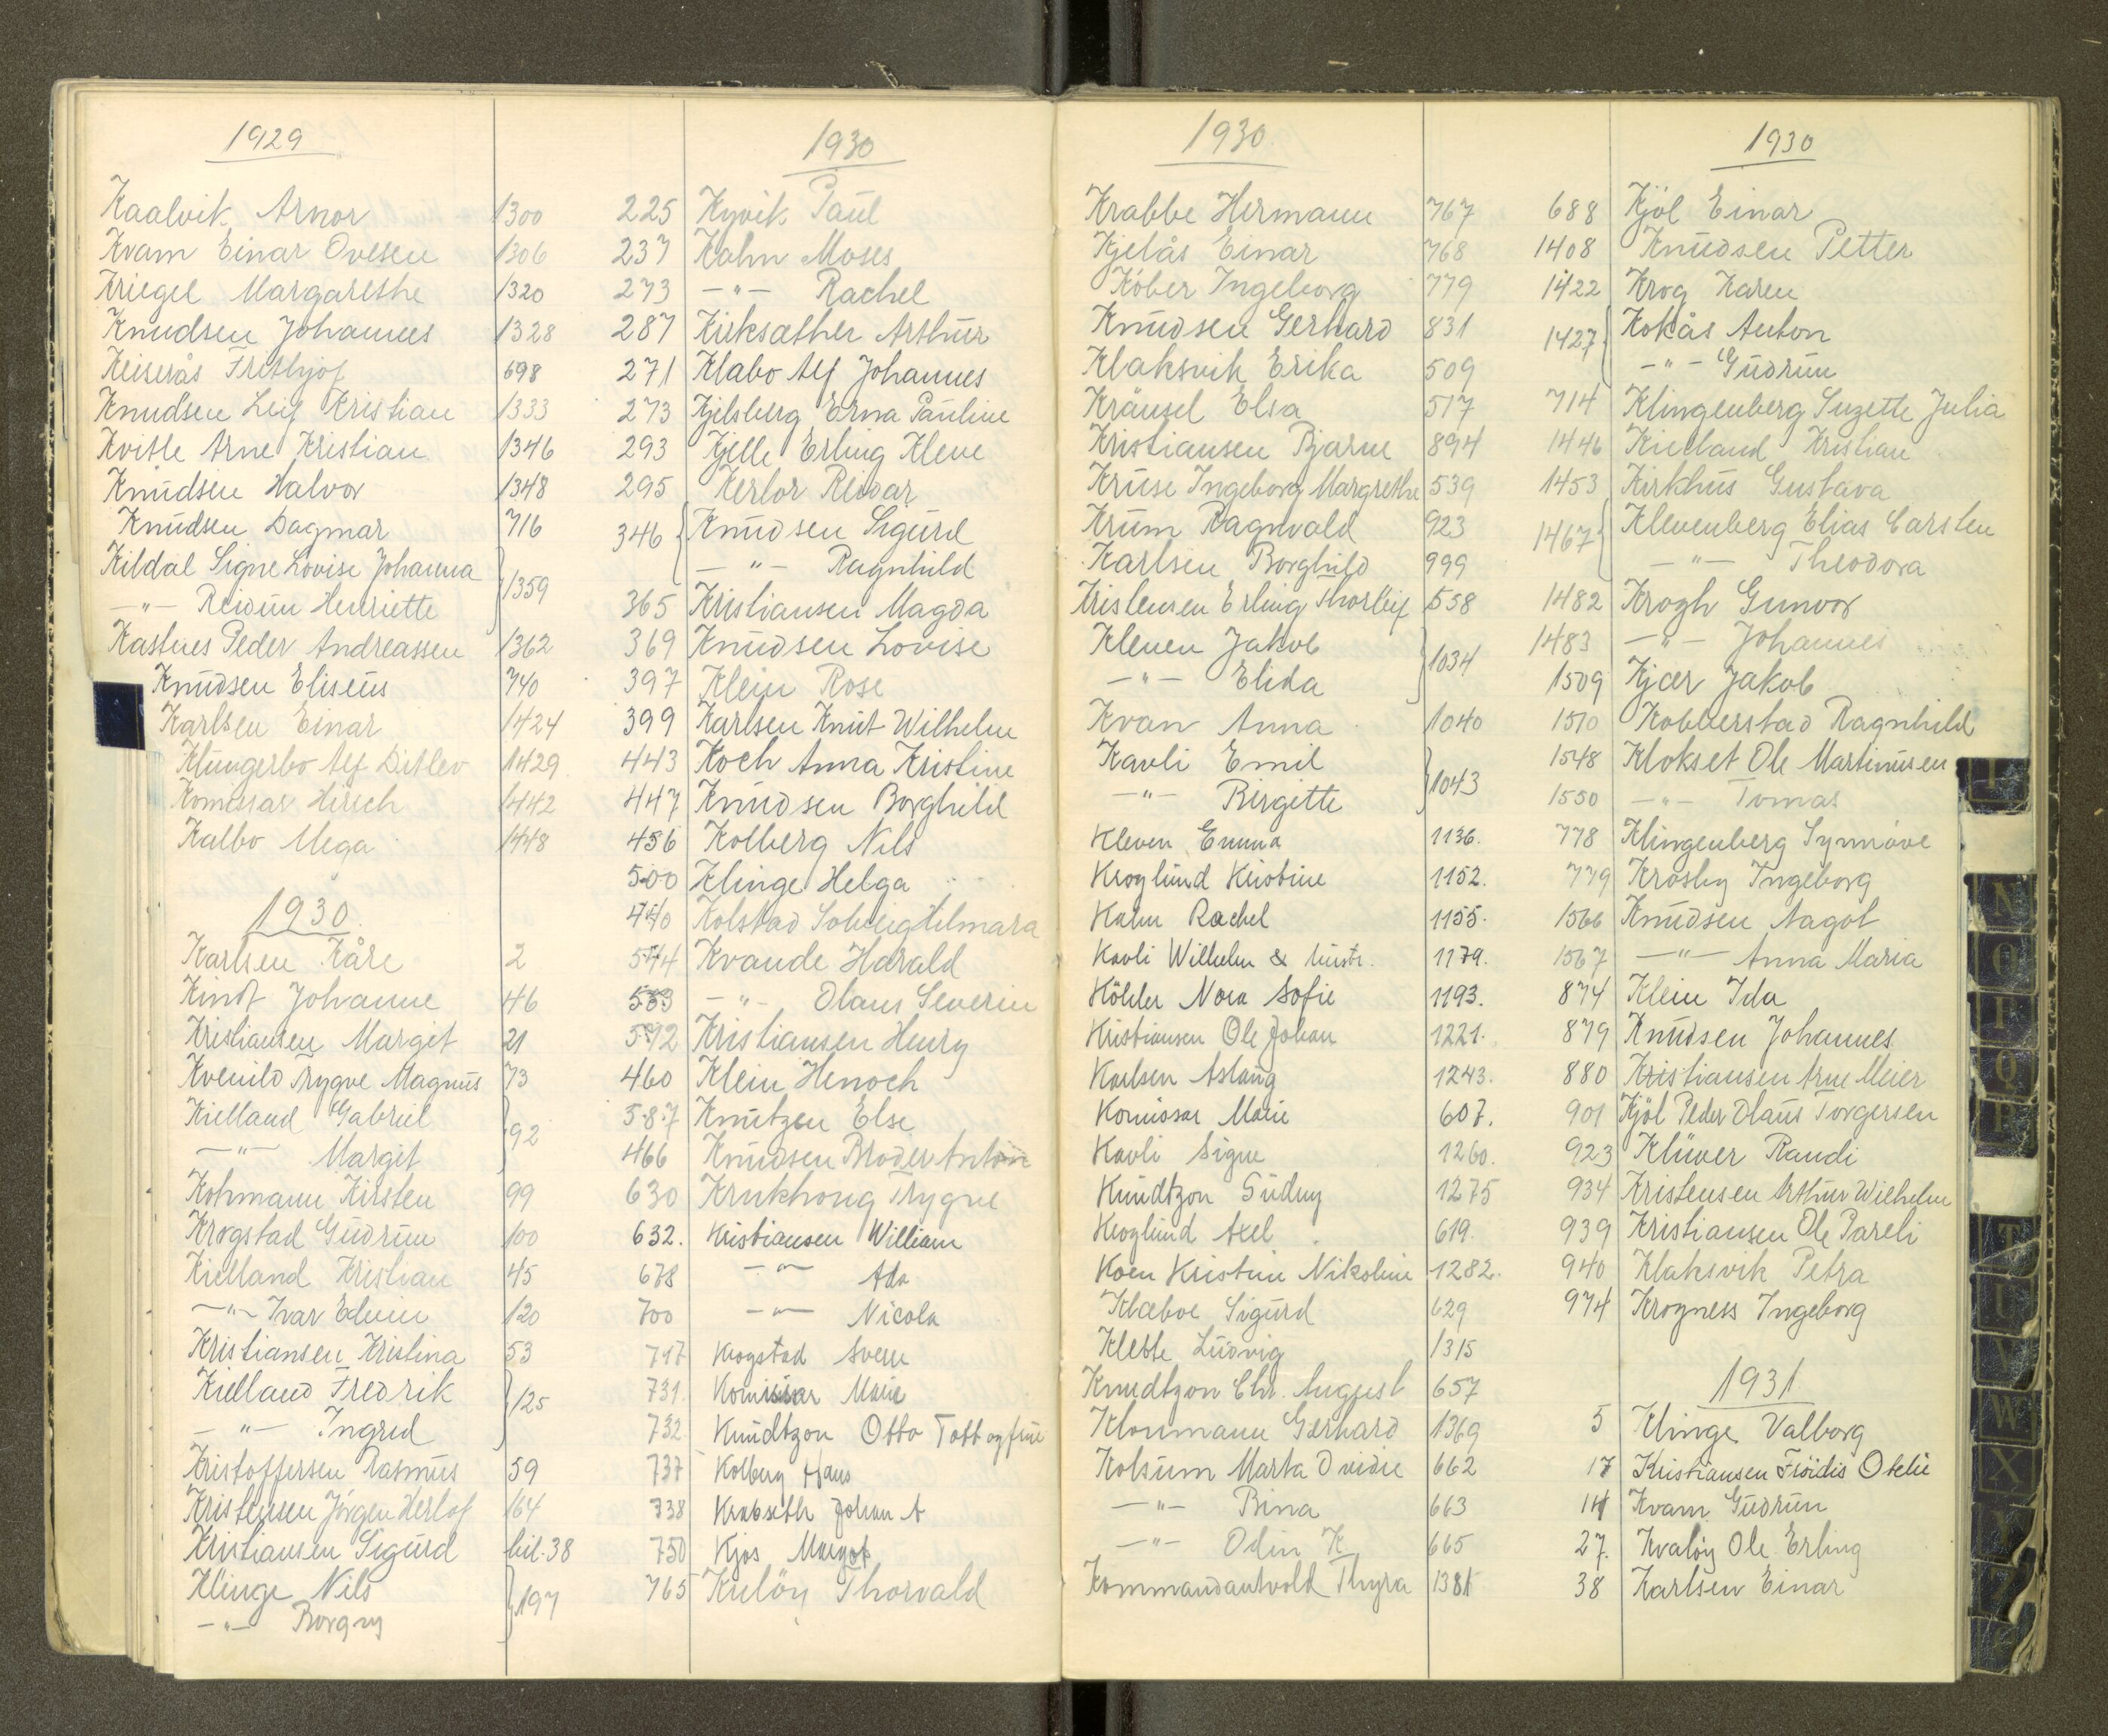 1929
Kaalvik Arnor 1300
Kvam Einar Ovesen 1306
Kriegel Margarethe 1320
Knudsen Johannes 1328
Keiserås Frithjof 698
Knudsen Leif Kristian 1333
Kvitle Arne Kristian 1346
Knudsen Halvor 1348
Knudsen Dagmar 716
Kildal Signe Lovise Johanna } 1359
—"— Reidun Henriette
Kastnes Peder Andreassen 1362
Knudsen Eliseus 740
Karlsen Einar 1424
Klungerbo Alf Ditlev 1429
Komissar Hirsch 1442
Kalbo Mega 1448
1930.
Karlsen Kåre 2
Kindt Johanne 46
Kristiansen Margit 21
Kvenild Trygve Magnus 73
Kielland Gabriel } 92
—"— Margit
Kohmann Kirsten 99
Krogstad Gudrun 100
Kielland Kristian 45
—"— Ivar Edvin 120
Kristiansen Kristina 53
Kielland Fredrik } 125
—"— Ingrid
Kristoffersen Rasmus 59
Kristensen Jörgen Herlof 164
Kristiansen Sigurd bil. 38
Klinge Nils } 197
—"— Borgny
1930
225 Kyvik Paul
237 Kahn Moses
273 —"— Rachel
287 Kirksæther Arthur
271 Klabo Alf Johannes
273 Kjelsberg Erna Pauline
293 Kjelle Erling Kleve
295 Kerlor Reidar
346 { Knudsen Sigurd
—"— Ragnhild
365 Kristiansen Magda
369 Knudsen Lovise
397 Klein Rose
399 Karlsen Knut Wilhelm
443 Koch Anna Kristine
447 Knudsen Borghild
456 Kolberg Nils
500 Klinge Helga
440 Kolstad Solveig
544 Kvande Harald
563 —"— Olaus Severin
592 Kristiansen Henry
460 Klein Henoch
587 Knutzen Else
466 Knudsen Broder Anton
630 Krukhoug Trygve
632. Kristiansen William
678 —"— Ada
700 —"— Nicola
717 Krogstad Sverr
731. Komissar Marie
732 Knudtzon Otto Tott og frue
737 Kolberg Hans
738 Krabseth Johan A
750 Kjøs Margot
765 Kulöy Thorvald
1930
Krabbe Hermann 767
Kjelås Einar 768
Köber Ingeborg 779
Knudsen Gerhard 831
Klaksvik Erika 509
Kräusel Elsa 517
Kristiansen Bjarne 894
Kruse Ingeborg Margrethe 539
Krum Ragnvald 923
Karlsen Borghild 999
Kristensen Erling Thorleif 558
Kleven Jakob } 1034
—"— Elida
Kvan Anna 1040
Kavli Emil } 1043
—"— Birgitte
Kleven Emma 1136.
Kroglund Kristine 1152.
Kahn Rachel 1155.
Kavli Wilhelm & hustr. 1179.
Köhler Nora Sofie 1193.
Kristiansen Ole Johan 1221.
Karlsen Aslaug 1243.
Komissar Marie 607.
Kavli Signe 1260.
Knudtzon Gudny 1275
Kroglund Axel 619.
Koen Kristine Nikoline 1282.
Klæboe Sigurd 629
Klette Ludvig 1315
Knudtzon Chr. August 657
Klonmann Gerhard 1369
Kolsum Marta Ovidie 662
—"— Bina 663
—"— Odin K. 665
Kommandantvold Thyra 1381
1930
688 Kjöl Einar
1408 Knudsen Petter
1422 Krog Karen
1427 { Kokås Anton
—"— Gudrun
714 Klingenberg Suzette Julia
1446 Kielland Kristian
1453 Kirkhus Gustava
1467 { Klevenberg Elias Carsten
—"— Theodora
1482 Krogh Gunvor
1483 —"— Johannes
1509 Kjær Jakob
1510 Kobberstad Ragnhild
1548 Klokset Ole Martinusen
1550 —"— Tomas
778 Klingenberg Synnöve
779 Krosby Ingeborg
1566 Knudsen Aagot
1567 —"— Anna Maria
874 Klein Ida
879 Knudsen Johannes
880 Kristiansen Arne Meier
901 Kjöl Peder Olaus Torgersen
923 Klüwer Randi
934 Kristensen Arthur Wilhelm
939 Kristiansen Ole Pareli
940 Klaksvik Petra
974 Krogness Ingeborg
1931
5 Klinge Valborg
17 Kristiansen Fröidis Otelie
14 Kvam Gudrun
27. Kvalöy Ole Erling
38 Karlsen Einar
L
N
O
P
Q
R
T
U
V
W
X
Y
Z